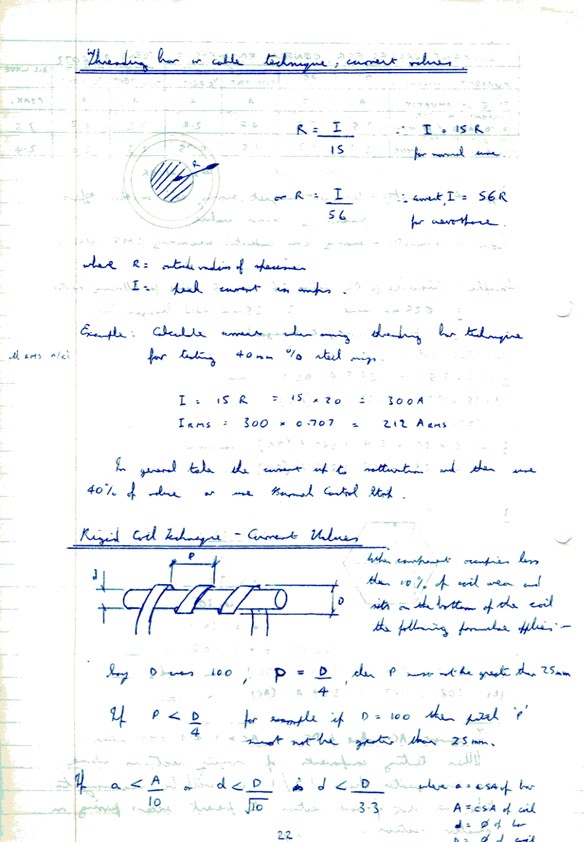 Threading bar or cable technique; current values.
R = I/15 ∴ I = 15R
for normal use.
R
or R = I/56 ∴ current, I = 56R
for aerospace.
where R = outside radius of specimen
I = peak current in amps.
Example: Calculate current when using threading bar technique
for testing 40mm o/d steel rings.
I = 15 R = 15 x 20 = 300A
Irms = 300 x 0.707 = 212 Arms
In general take the current up to saturation and then use
40% of value or use Burmah Castrol Strip.
Rigid Coil Technique - Current Values
P
d
D
When component occupies less
than 10% of coil area and
sits on the bottom of the coil
the following formulae applies:-
Say D was 100, P = D/4, then P must not be greater than 25mm
If P < D/4 for example if D = 100 then pitch 'P'
must not be greater than 25mm.
If a < A/10 or d < D/√10 is d < D/3.3 where a = csa of bar
A = csa of coil
d = Ø of bar
D = Ø of coil
22